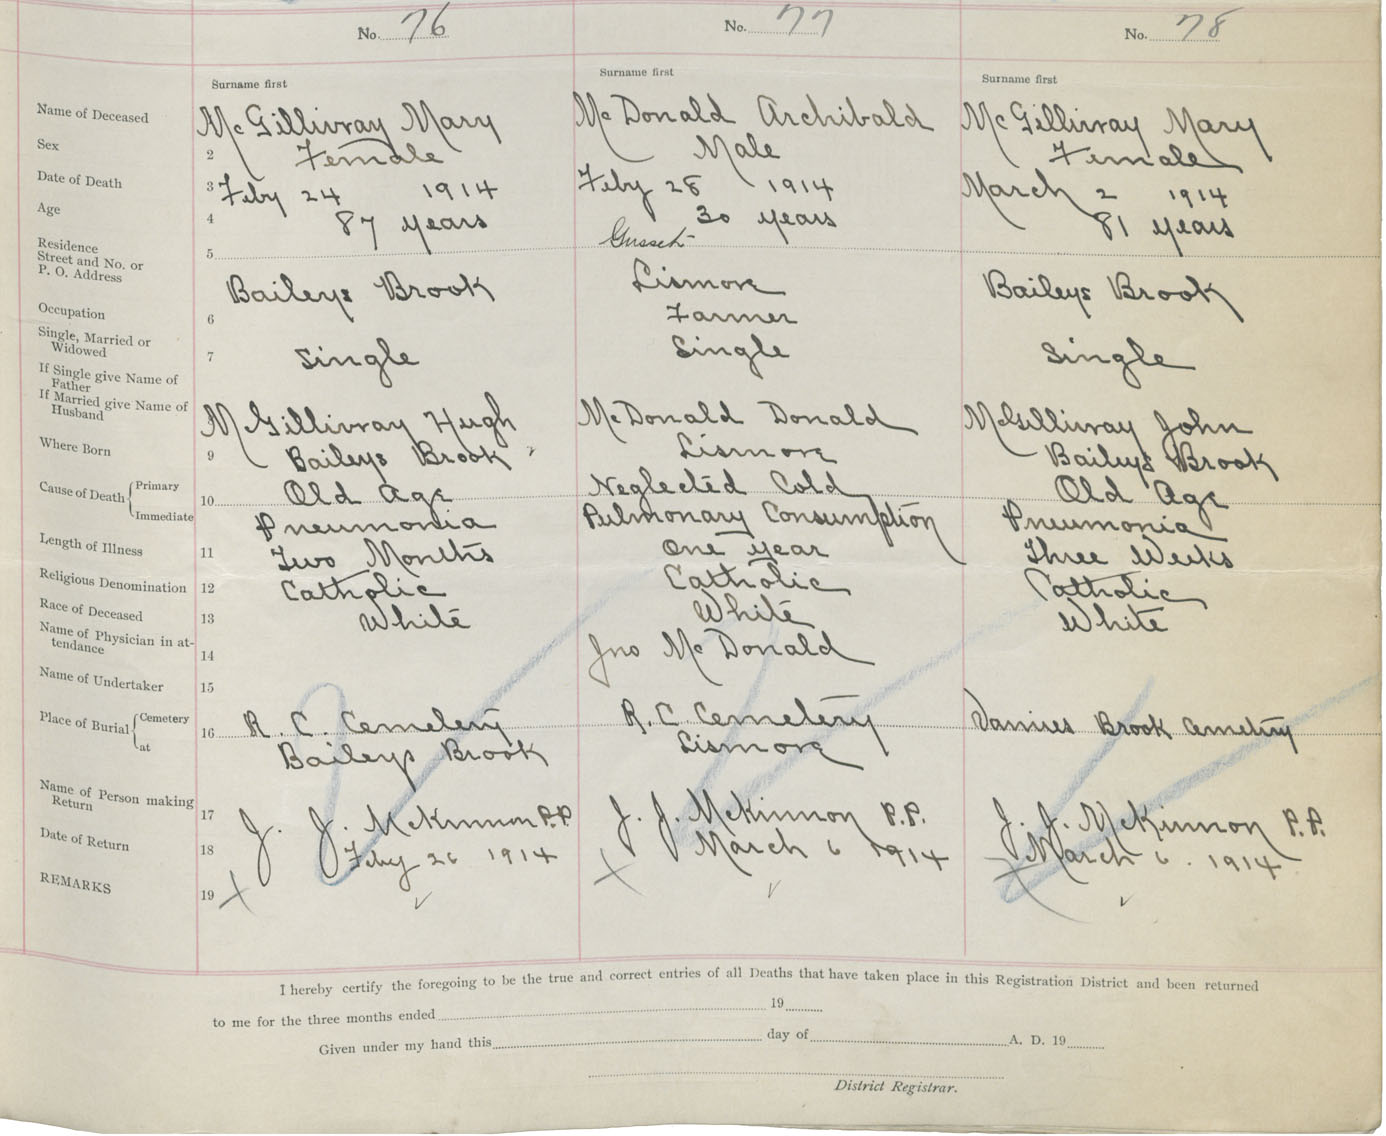 No. 76 No. 77 No. 78
Surname first Surname first Surname first
Name of Deceased McGillivray Mary McDonald Archibald McGillivray Mary
Sex 2 Female Male Female
Date of Death 3 Feby 24 1914 Feby 28 1914 March 2 1914
Age 4 87 years 30 years 81 years
Residence
Street and No. or 5
P. O. Address Baileys Brook Lismore Baileys Brook
Occupation 6 Farmer
Single, Married or
Widowed 7 Single Single Single
If Single give Name of
Father
If Married give Name of
Husband McGillivray Hugh McDonald Donald McGillivray John
Where Born 9 Baileys Brook Lismore Baileys Brook
Cause of Death Primary 10 Old Age Neglected Cold Old Age
Immediate Pneumonia Pulmonary Consumption Pneumonia
Length of Illness 11 Two Months One year Three Weeks
Religious Denomination 12 Catholic Catholic Catholic
Race of Deceased 13 White White White
Name of Physician in at-
tendance 14 Jno McDonald
Name of Undertaker 15
Place of Burial Cemetery 16 R. C. Cemetery R. C. Cemetery Brook Cemetery
at Baileys Brook Lismore
Name of Person making
Return 17 J. J. McKinnon P.P. J. J. McKinnon P.P. J. J. McKinnon P.P.
Date of Return 18 Feby 26 1914 March 6 1914 March 6. 1914
REMARKS 19
I hereby certify the foregoing to be the true and correct entries of all Deaths that have taken place in this Registration District and been returned
to me for the three months ended 19
Given under my hand this day of A. D. 19
District Registrar.